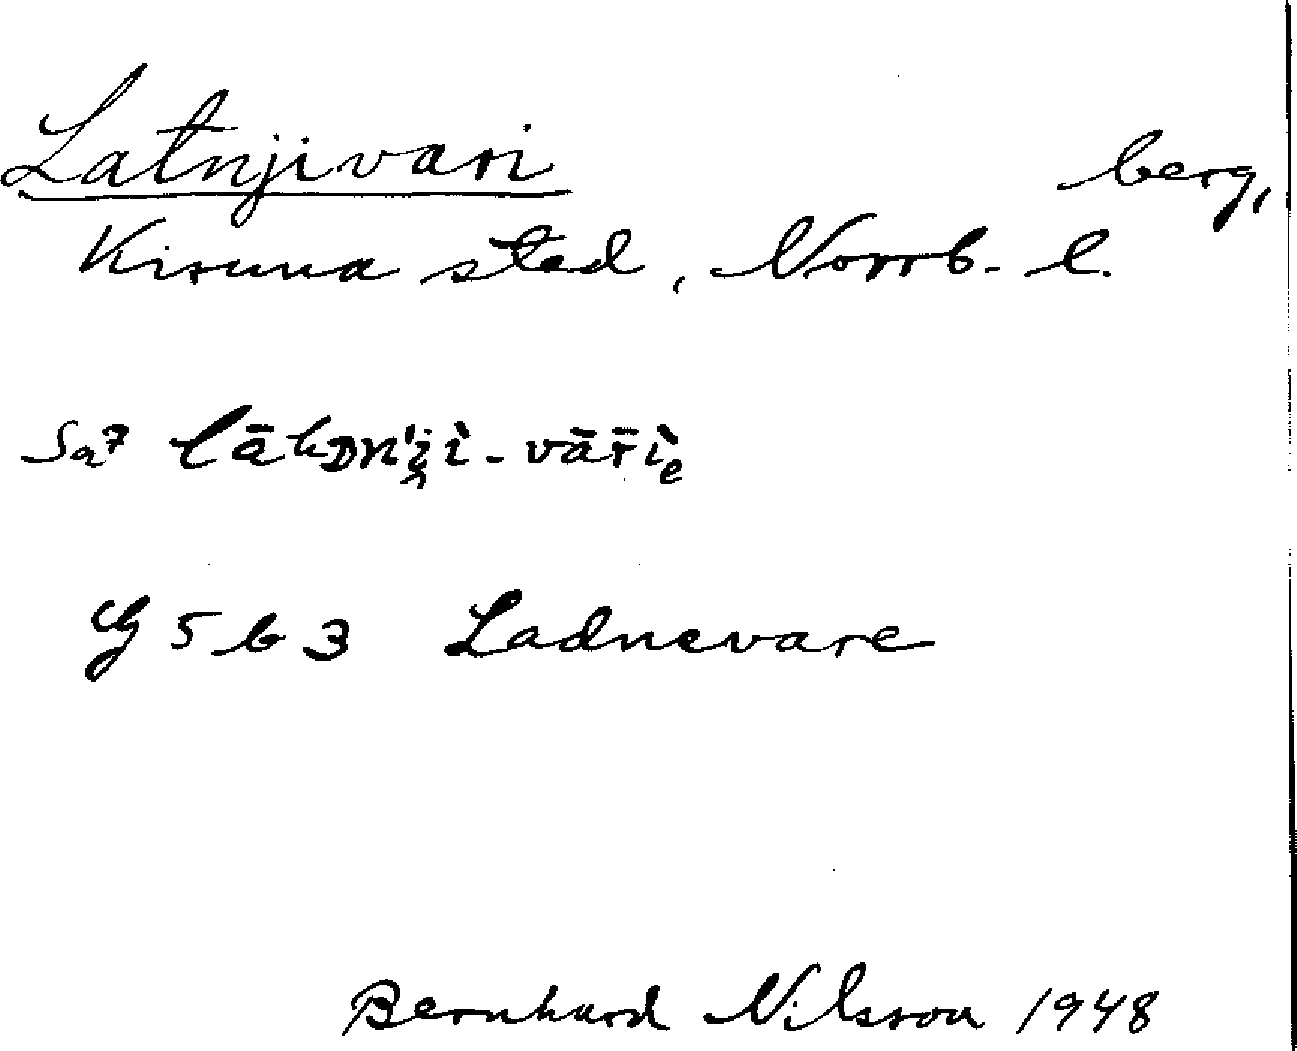 Latnjivari berg,
Kiruna stad, Norrb. l.
Sa⁷
G 5 b 3 Ladnevare
Bernhard Nilsson 1948